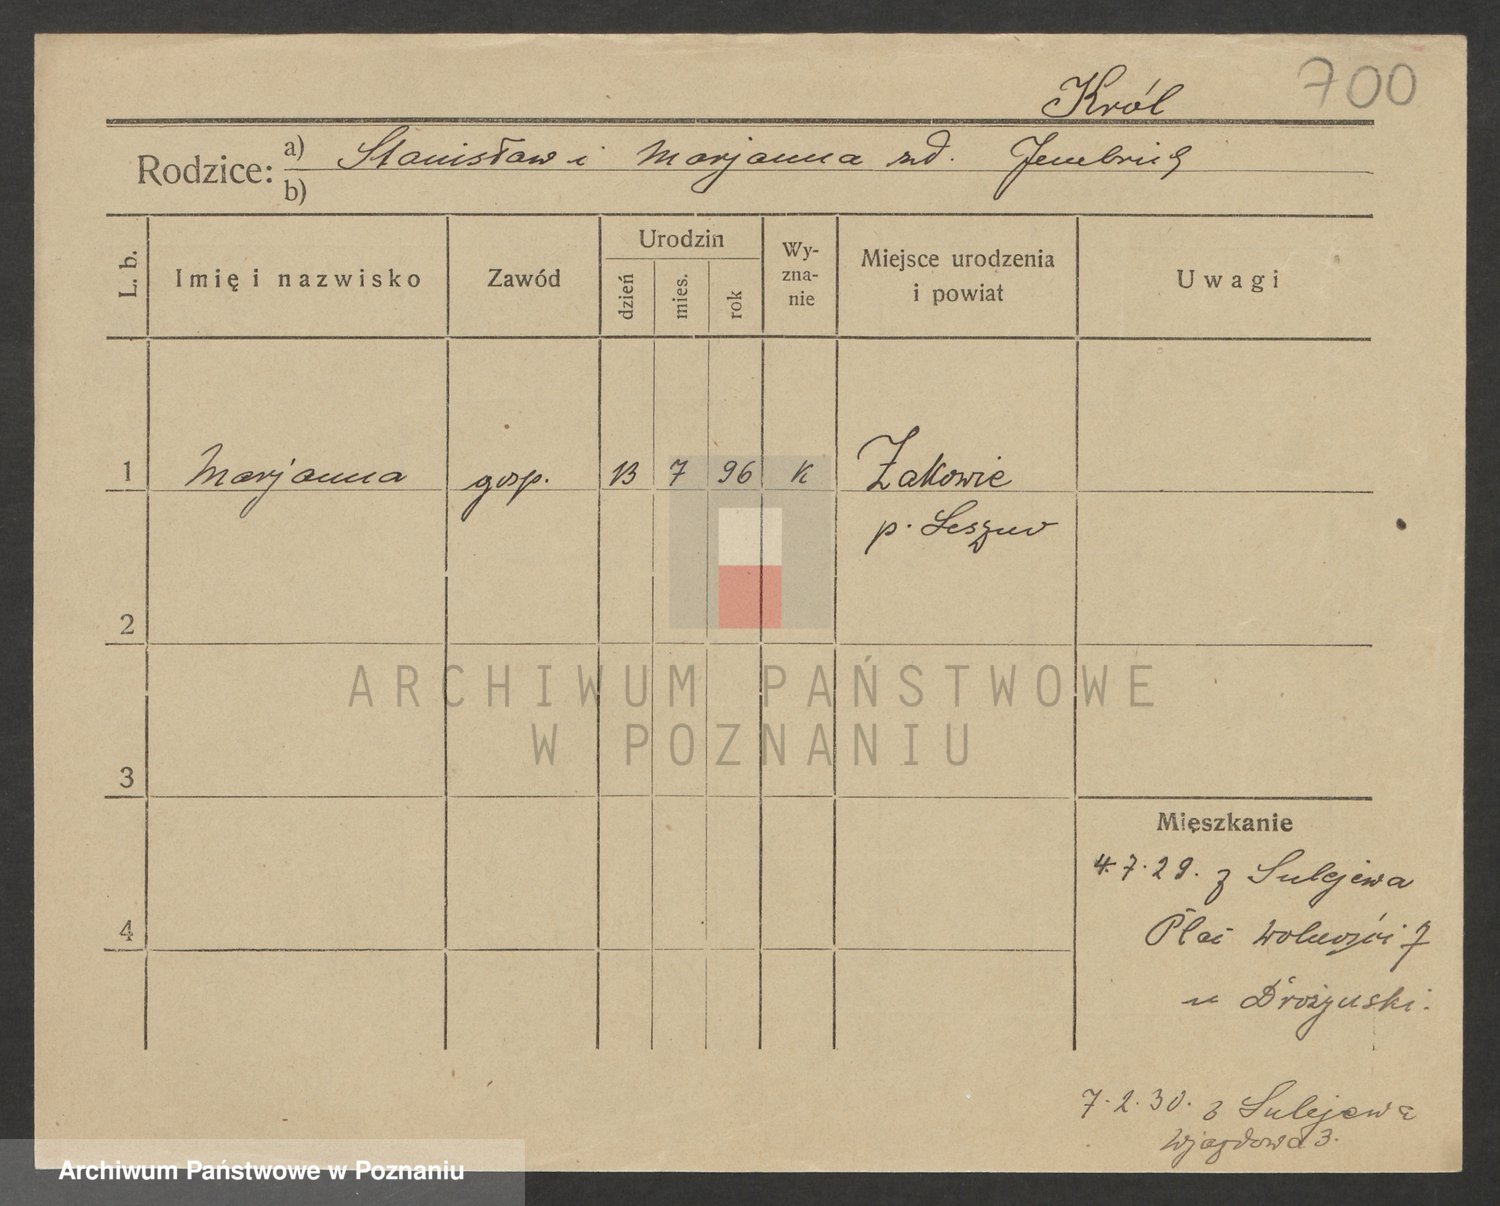 700
Król
Rodzice: a) Stanisław i Marjanna zd.
b)
L. b.
Imię i nazwisko
Zawód
Urodzin
dzień
mies.
rok
Wy-
zna-
nie
Miejsce urodzenia
i powiat
Uwagi
1 Marjanna gosp. 13 7 96 K Żakowie
p. Leszno
2
3
4
Mieszkanie
4.7.29. z Sulejewa
Plac Wolności 7
u Drożyński.
7.2.30. z Sulejewa
Wjazdowa 3.
ARCHIWUM PAŃSTWOWE
W POZNANIU
Archiwum Państwowe w Poznaniu